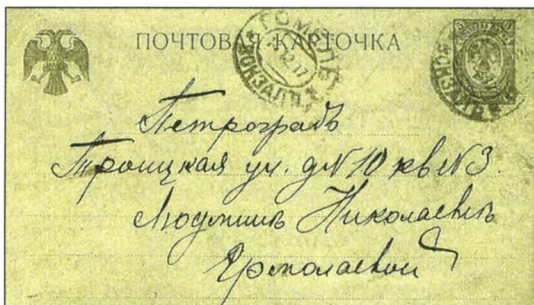 ПОЧТОВАЯ КАРТОЧКА
ГОМЕЛЬ
ВОКЗАЛЪ
Петроградъ
Троицкая ул. д№10 кв№3.
Людмилѣ Николаевнѣ
Ермолаевой